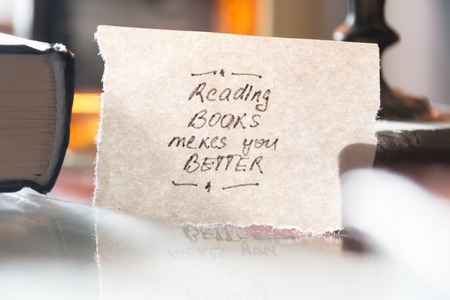 Reading
BOOKS
makes you
BETTER